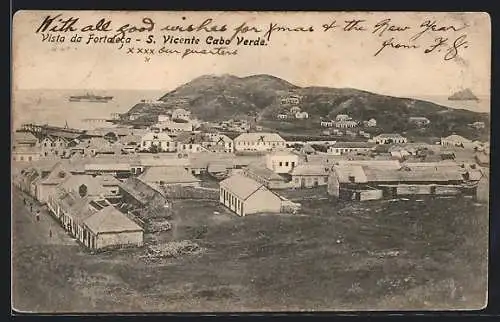 With all good wishes for Xmas & the New Year
Vista da Fortaleça - S. Vicente Cabo Verde.
from F. G.
xxxx our quarters